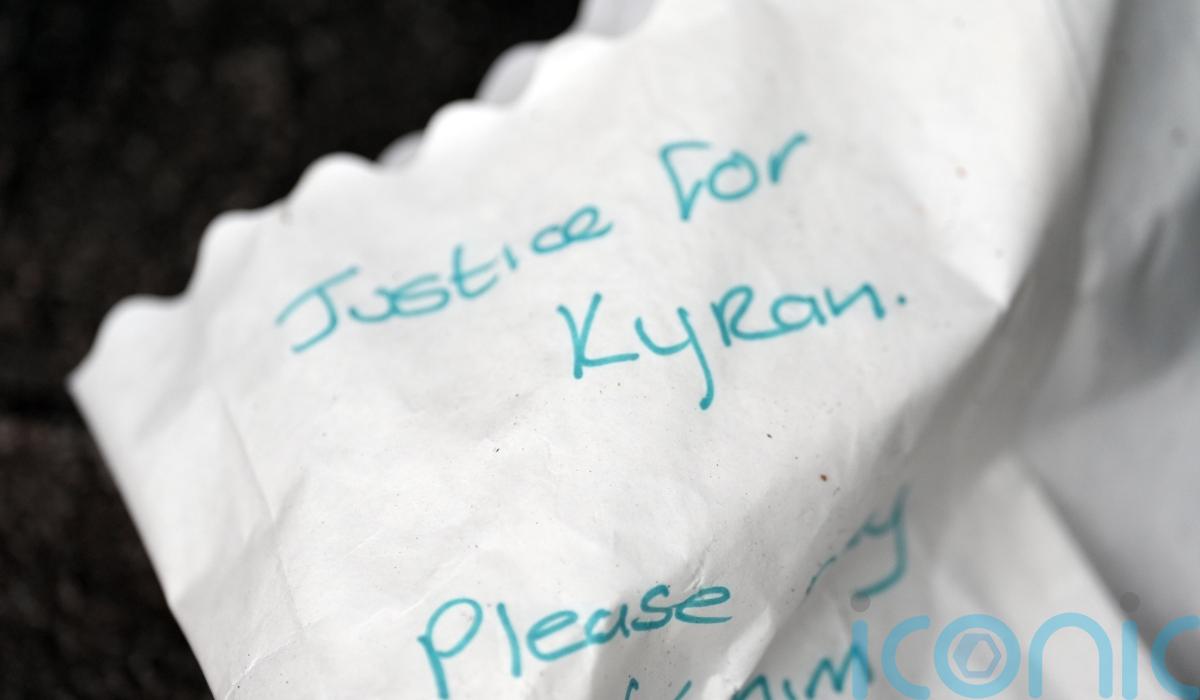 Justice for
KyRan.
Please
iconic